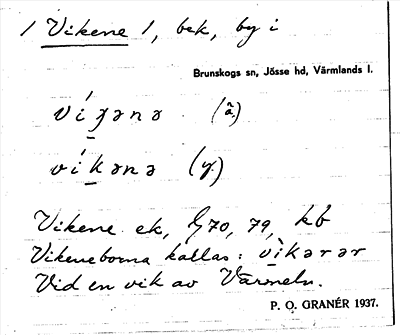 / Vikene /, bek, by i
Brunskogs sn, Jösse hd, Värmlands l.
vígənə (ä.)
víkənə (y.)
Vikene ek, G70, 79, kb
Vikeneborna kallas: vìkərər
Vid en vik av Värmeln.
P. O. GRANÉR 1937.